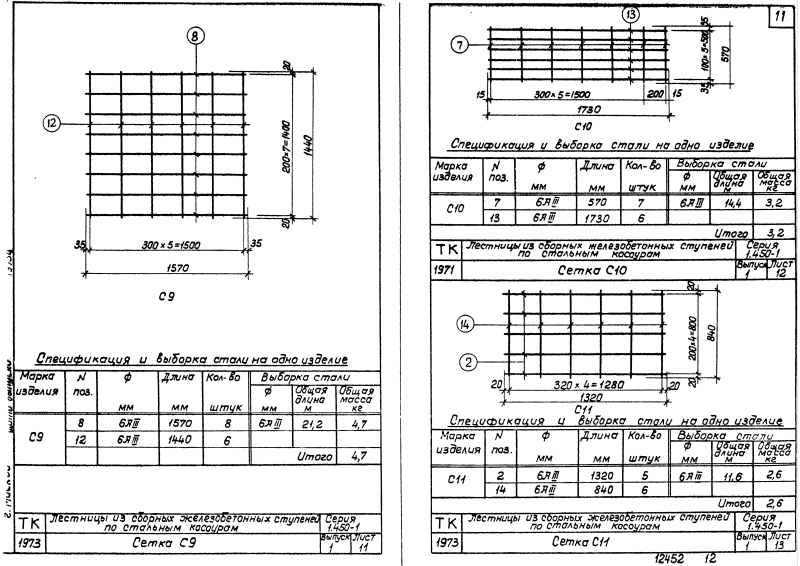 8
12
20
200×7=1400
1440
20
35
300×5=1500
35
1570
С9
Спецификация и выборка стали на одно изделие
Марка изделия N поз. Ф мм Длина мм Кол-во штук Выборка стали
Ф мм Общая длина м Общая масса кг
С9 8 6АIII 1570 8 6АIII 21,2 4,7
12 6АIII 1440 6
Итого 4,7
ТК Лестницы из сборных железобетонных ступеней по стальным косоурам Серия 1.450-1
1973 Сетка С9 Выпуск 1 Лист 11
11
13
7
35
100×5=500
570
35
15 300×5=1500 200 15
1730
С10
Спецификация и выборка стали на одно изделие
Марка изделия N поз. Ф мм Длина мм Кол-во штук Выборка стали
Ф мм Общая длина м Общая масса кг
С10 7 6АIII 570 7 6АIII 14,4 3,2
13 6АIII 1730 6
Итого 3,2
ТК Лестницы из сборных железобетонных ступеней по стальным косоурам Серия 1.450-1
1971 Сетка С10 Выпуск 1 Лист 12
14
2
20
200×4=800
840
20
20 320×4=1280 20
1320
С11
Спецификация и выборка стали на одно изделие
Марка изделия N поз. Ф мм Длина мм Кол-во штук Выборка стали
Ф мм Общая длина м Общая масса кг
С11 2 6АIII 1320 5 6АIII 11,6 2,6
14 6АIII 840 6
Итого 2,6
ТК Лестницы из сборных железобетонных ступеней по стальным косоурам Серия 1.450-1
1973 Сетка С11 Выпуск 1 Лист 13
12452 12
г. Москва